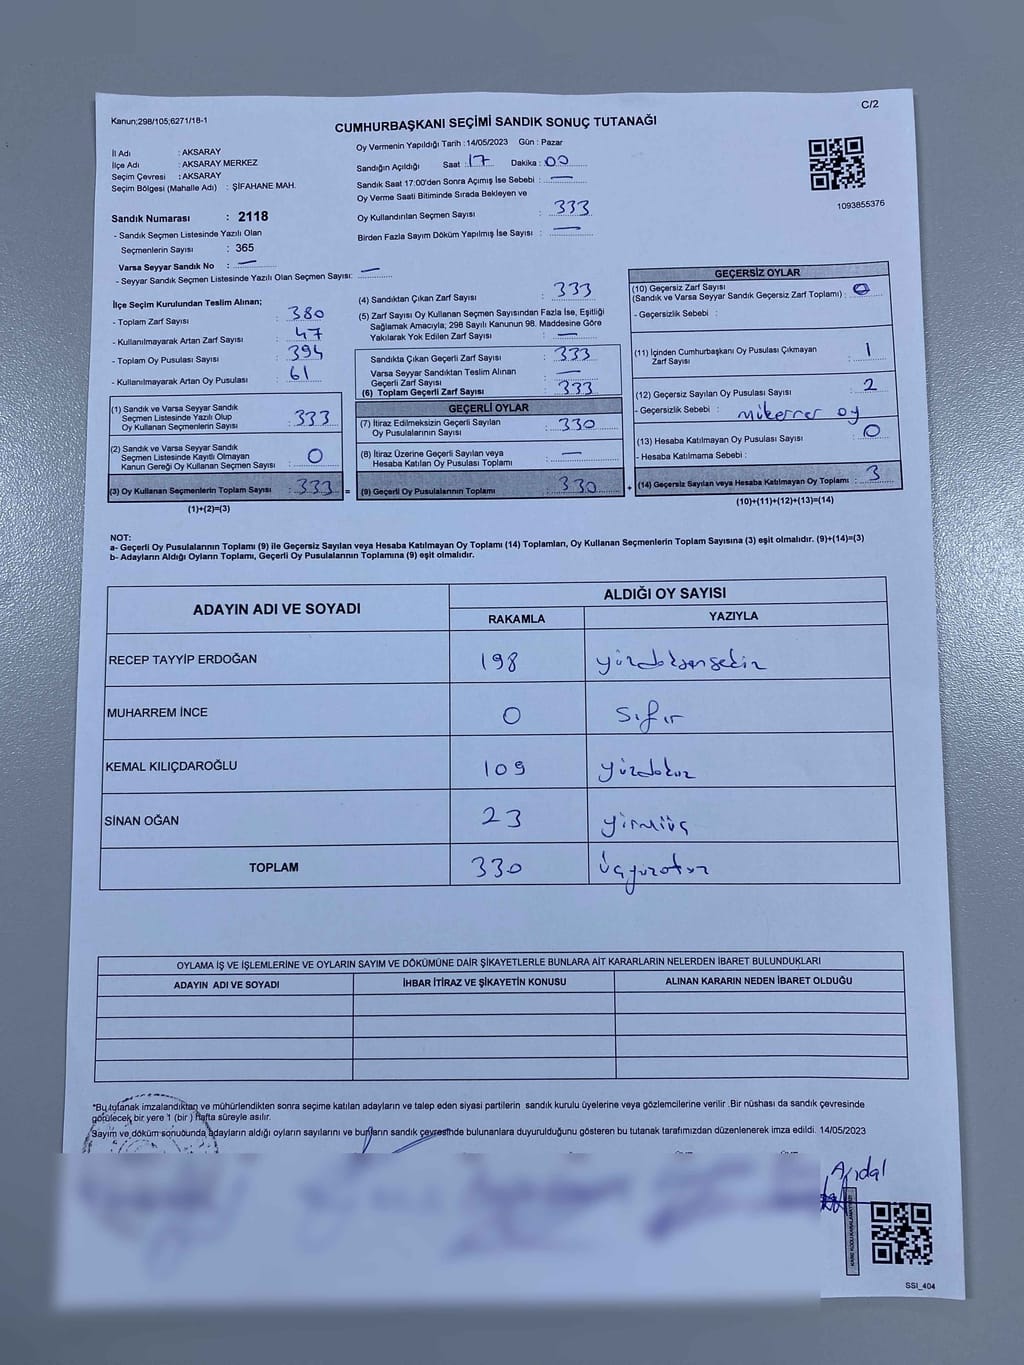 Kanun;298/105;6271/18-1
C/2
CUMHURBAŞKANI SEÇİMİ SANDIK SONUÇ TUTANAĞI
İl Adı : AKSARAY
İlçe Adı : AKSARAY MERKEZ
Seçim Çevresi : AKSARAY
Seçim Bölgesi (Mahalle Adı) : ŞİFAHANE MAH.
Sandık Numarası : 2118
- Sandık Seçmen Listesinde Yazılı Olan
Seçmenlerin Sayısı : 365
Varsa Seyyar Sandık No : —
- Seyyar Sandık Seçmen Listesinde Yazılı Olan Seçmen Sayısı: —
Oy Vermenin Yapıldığı Tarih :14/05/2023 Gün : Pazar
Sandığın Açıldığı Saat : 17 Dakika : 00
Sandık Saat 17:00'den Sonra Açımış İse Sebebi : —
Oy Verme Saati Bitiminde Sırada Bekleyen ve
Oy Kullandırılan Seçmen Sayısı : 333
Birden Fazla Sayım Döküm Yapılmış İse Sayısı : —
1093855376
İlçe Seçim Kurulundan Teslim Alınan;
- Toplam Zarf Sayısı : 380
- Kullanılmayarak Artan Zarf Sayısı : 47
- Toplam Oy Pusulası Sayısı : 394
- Kullanılmayarak Artan Oy Pusulası : 61
(1) Sandık ve Varsa Seyyar Sandık
Seçmen Listesinde Yazılı Olup
Oy Kullanan Seçmenlerin Sayısı : 333
(2) Sandık ve Varsa Seyyar Sandık
Seçmen Listesinde Kayıtlı Olmayan
Kanun Gereği Oy Kullanan Seçmen Sayısı : 0
(3) Oy Kullanan Seçmenlerin Toplam Sayısı : 333 =
(1)+(2)=(3)
(4) Sandıktan Çıkan Zarf Sayısı : 333
(5) Zarf Sayısı Oy Kullanan Seçmen Sayısından Fazla İse, Eşitliği
Sağlamak Amacıyla; 298 Sayılı Kanunun 98. Maddesine Göre
Yakılarak Yok Edilen Zarf Sayısı : —
Sandıkta Çıkan Geçerli Zarf Sayısı : 333
Varsa Seyyar Sandıktan Teslim Alınan
Geçerli Zarf Sayısı : —
(6) Toplam Geçerli Zarf Sayısı : 333
GEÇERLİ OYLAR
(7) İtiraz Edilmeksizin Geçerli Sayılan
Oy Pusulalarının Sayısı : 330
(8) İtiraz Üzerine Geçerli Sayılan veya
Hesaba Katılan Oy Pusulası Toplamı : —
(9) Geçerli Oy Pusulalarının Toplamı : 330 +
GEÇERSİZ OYLAR
(10) Geçersiz Zarf Sayısı
(Sandık ve Varsa Seyyar Sandık Geçersiz Zarf Toplamı) : 0
- Geçersizlik Sebebi :
(11) İçinden Cumhurbaşkanı Oy Pusulası Çıkmayan
Zarf Sayısı : 1
(12) Geçersiz Sayılan Oy Pusulası Sayısı : 2
- Geçersizlik Sebebi : mükerrer oy
(13) Hesaba Katılmayan Oy Pusulası Sayısı : 0
- Hesaba Katılmama Sebebi :
(14) Geçersiz Sayılan veya Hesaba Katılmayan Oy Toplamı : 3
(10)+(11)+(12)+(13)=(14)
NOT:
a- Geçerli Oy Pusulalarının Toplamı (9) ile Geçersiz Sayılan veya Hesaba Katılmayan Oy Toplamı (14) Toplamları, Oy Kullanan Seçmenlerin Toplam Sayısına (3) eşit olmalıdır. (9)+(14)=(3)
b- Adayların Aldığı Oyların Toplamı, Geçerli Oy Pusulalarının Toplamına (9) eşit olmalıdır.
ADAYIN ADI VE SOYADI
ALDIĞI OY SAYISI
RAKAMLA YAZIYLA
RECEP TAYYİP ERDOĞAN 198 yüzdoksansekiz
MUHARREM İNCE 0 sıfır
KEMAL KILIÇDAROĞLU 109 yüzdokuz
SİNAN OĞAN 23 yirmiüç
TOPLAM 330 üçyüzotuz
OYLAMA İŞ VE İŞLEMLERİNE VE OYLARIN SAYIM VE DÖKÜMÜNE DAİR ŞİKAYETLERLE BUNLARA AİT KARARLARIN NELERDEN İBARET BULUNDUKLARI
ADAYIN ADI VE SOYADI İHBAR İTİRAZ VE ŞİKAYETİN KONUSU ALINAN KARARIN NEDEN İBARET OLDUĞU
*Bu tutanak imzalandıktan ve mühürlendikten sonra seçime katılan adayların ve talep eden siyasi partilerin sandık kurulu üyelerine veya gözlemcilerine verilir .Bir nüshası da sandık çevresinde
görülecek bir yere 1 (bir ) hafta süreyle asılır.
Sayım ve döküm sonuounda adayların aldığı oyların sayılarını ve bunların sandık çevresinde bulunanlara duyurulduğunu gösteren bu tutanak tarafımızdan düzenlenerek imza edildi. 14/05/2023
SSI_404